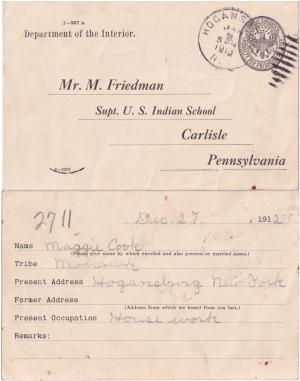 1—567 a
Department of the Interior.
HOGANS
N.
Mr. M. Friedman
Supt. U. S. Indian School
Carlisle
Pennsylvania
2711
Dec. 27, 1912
Name Maggie Cook
(Please give name by which enrolled and also present or married name.)
Tribe Mohawk
Present Address Hogansburg New York
Former Address
(Address from which we heard from you last.)
Present Occupation House work
Remarks: